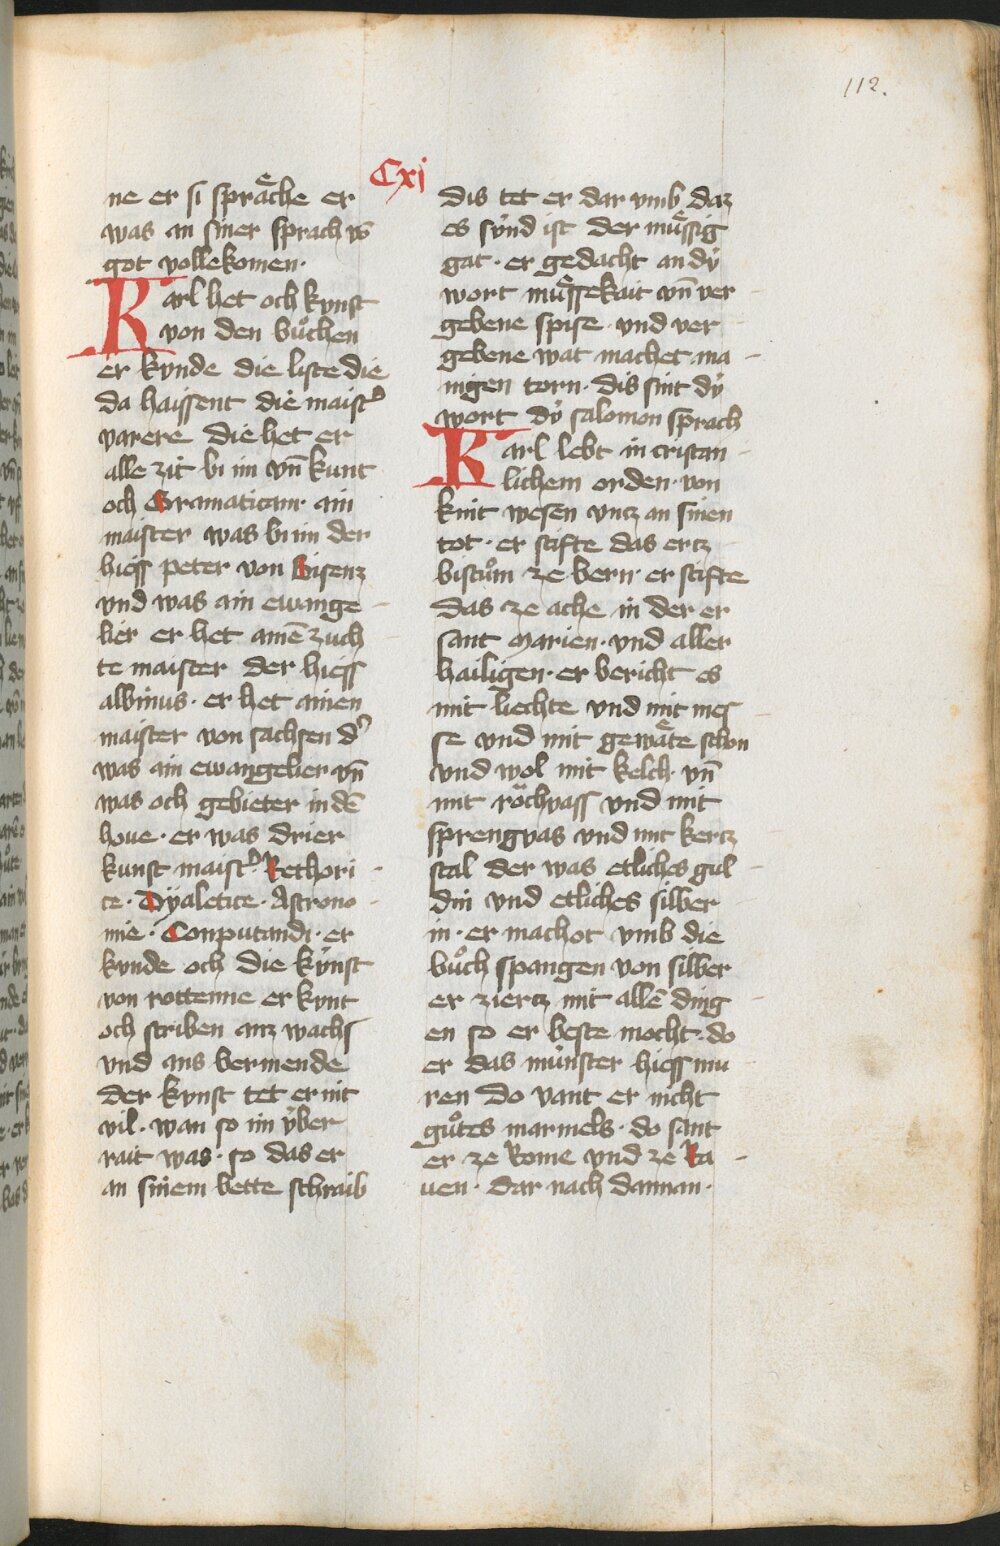 112.
Cxj
ne er si spraͤche er
was an siner sprach vō
got vollekomen·
Karl het och kvnst
von den buͦchen
er kvnde die liste die
da haissent die maist᾽
varere die het er
alle zit bi im vn̄ kunt
och Gramaticam· ain
maister was bi im der
hiess peter von Bisenz
vnd was ain ewange
lier er het ainē zuch
te maister der hiess
albinus· er het ainen
maister von sachsen d᾽
was ain ewangelier vn̄
was och gebieter in dē
houe· er was drier
kunst maist᾽ Rethori
ce· Dÿaletice· Astrono
mie· Conputandi· er
kvnde och die kv̈nst
von rottenne er kvnt
och scriben anz wachs
vnd ans bermende
der kvnst tet er nit
vil· wan so im v̈ber
rait was· so das er
an sinem bette schraib
dis tet er dar vmb daz
es sv̈nd ist der muͤssig
gat· er gedacht an dÿ
wort muͤssekait vn̄ ver
gebene spise· vnd ver
gebene wat machet ma
nigen torn· dis sint dÿ
wort dÿ salomon sprach
Karl lebt in cristan
lichem orden· von
kint wesen vntz an sinen
tot· er stifte das ertz
bistuͦm ze bern· er stifte
das ze ache in der er
sant Marien· vnd aller
hailigen· er bericht es
mit liechte vnd mit mes
se vnd mit gewaͤte schon
vnd wol mit kelch· vn̄
mit roͤchvass vnd mit
sprengvas vnd mit kertz
stal der was etliches gul
din vnd etliches silber
in· er machot vmb die
buͦch spangen von silber
er ziertz mit allē ding
en so er beste mocht· do
er das mu̇nster hiess mu
ren do vant er nicht
guͦtes marmels· do sant
er ze Rome vnd ze Ra
uen· dar nach dannan·